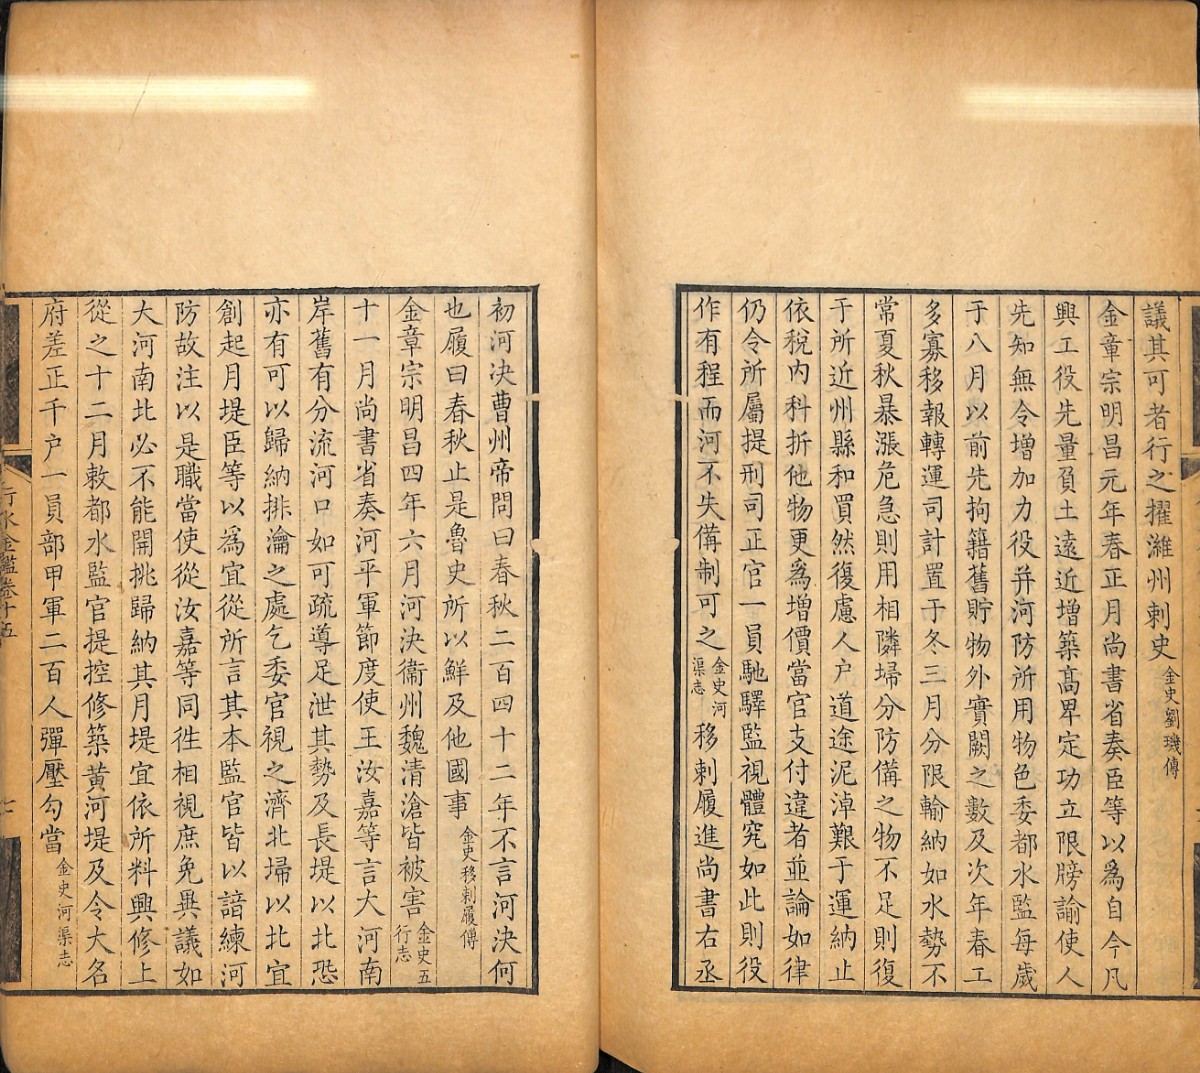 議其可者行之擢濰州刺史金史劉璣傳
金章宗明昌元年春正月尚書省奏臣等以為自今凡
興工役先量負土遠近增築高卑定功立限牓諭使人
先知無令增加力役并河防所用物色委都水監每歲
于八月以前先拘籍舊貯物外實闕之數及次年春工
多寡移報轉運司計置于冬三月分限輸納如水勢不
常夏秋暴漲危急則用相隣埽分防備之物不足則復
于所近州縣和買然復慮人户道途泥淖艱于運納止
依稅内科折他物更為增價當官支付違者並論如律
仍令所屬提刑司正官一員馳驛監視體究如此則役
作有程而河不失備制可之金史河渠志移剌履進尚書右丞
初河決曹州帝問曰春秋二百四十二年不言河決何
也履曰春秋止是魯史所以鮮及他國事金史移剌履傳
金章宗明昌四年六月河決衞州魏清滄皆被害金史五行志
十一月尚書省奏河平軍節度使王汝嘉等言大河南
岸舊有分流河口如可疏導足泄其勢及長堤以北恐
亦有可以歸納排瀹之處乞委官視之濟北埽以北宜
創起月堤臣等以為宜從所言其本監官皆以諳練河
防故注以是職當使從汝嘉等同往相視庶免異議如
大河南北必不能開挑歸納其月堤宜依所料興修上
從之十二月敕都水監官提控修築黃河堤及令大名
府差正千户一員部甲軍二百人彈壓勾當金史河渠志
行水金鑑卷十五